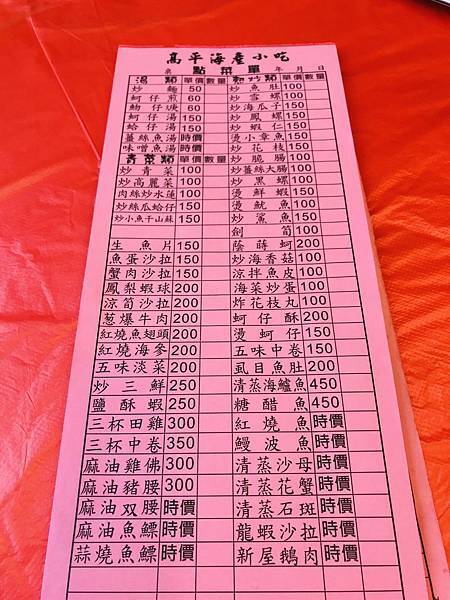 高平海產小吃
桌 點菜單 年 月 日
湯類 單價 數量 熱炒類 單價 數量
炒麵 50 炒魚肚 100
蚵仔煎 60 炒雪螺 100
蚋仔焿 60 炒海瓜子 150
蚵仔湯 150 炒鳳螺 150
蛤仔湯 150 炒蝦仁 150
薑絲魚湯 時價 燙小章魚 150
味噌魚湯 時價 炒花枝 150
青菜類 單價 數量 炒脆腸 100
炒青菜 100 炒薑絲大腸 100
炒高麗菜 100 炒黑螺 100
肉絲炒水蓮 100 燙鮮蝦 150
炒絲瓜蛤仔 150 燙魷魚 100
炒小魚干山蘇 150 炒鯊魚 150
劍筍 100
生魚片 150 蔭蒔蚵 200
魚蛋沙拉 150 炒海香菇 100
蟹肉沙拉 150 涼拌魚皮 100
鳳梨蝦球 200 海菜炒蛋 100
涼筍沙拉 200 炸花枝丸 100
蔥爆牛肉 200 蚵仔酥 200
紅燒魚翅頭 200 燙蚵仔 150
紅燒海參 200 五味中卷 150
五味淡菜 200 虱目魚肚 200
炒三鮮 250 清蒸海鱸魚 450
鹽酥蝦 250 糖醋魚 450
三杯田雞 300 紅燒魚 時價
三杯中卷 350 鰻波魚 時價
麻油雞佛 300 清蒸沙母 時價
麻油豬腰 300 清蒸花蟹 時價
麻油双腰 時價 清蒸石斑 時價
麻油魚鰾 時價 龍蝦沙拉 時價
蒜燒魚鰾 時價 新屋鵝肉 時價